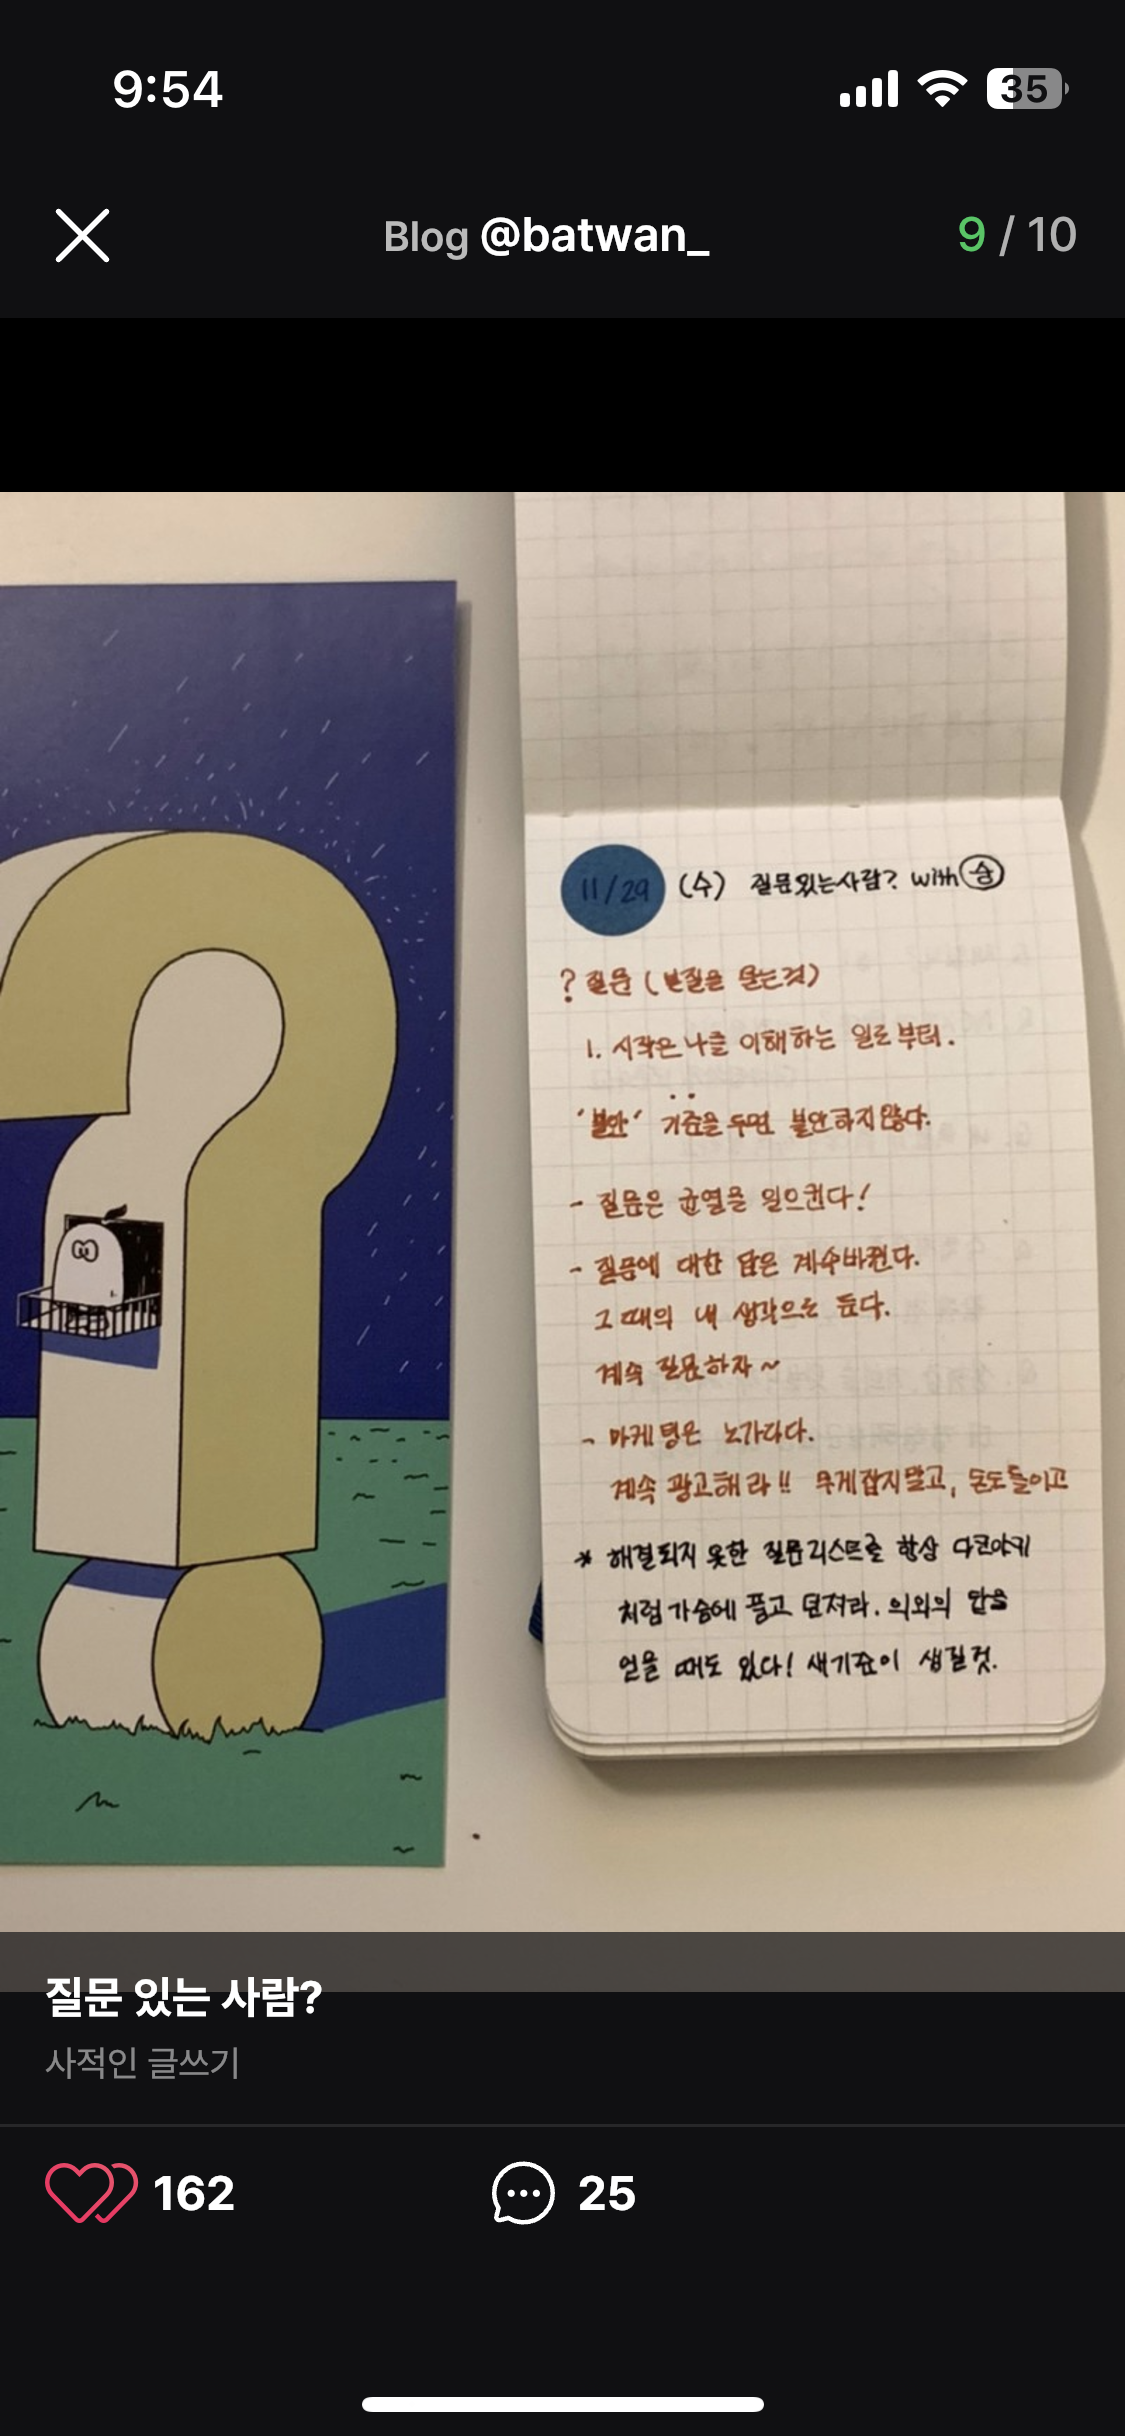 9:54
35
Blog @batwan_
9 / 10
11/29 (수) 질문있는사람? with 승
? 질문 (본질을 묻는것)
1. 시작은 나를 이해하는 일로부터.
'불안' 기준을 두면 불안하지않다.
- 질문은 균열을 일으킨다!
- 질문에 대한 답은 계속바뀐다.
그때의 내 생각으로 둔다.
계속 질문하자~
- 마케팅은 노가다다.
계속 광고해라!! 무게잡지말고, 돈도들이고
* 해결되지 못한 질문리스트를 항상 다코야키
처럼 가슴에 품고 던져라. 의외의 답을
얻을 때도 있다! 새기준이 생길것.
질문 있는 사람?
사적인 글쓰기
162
25